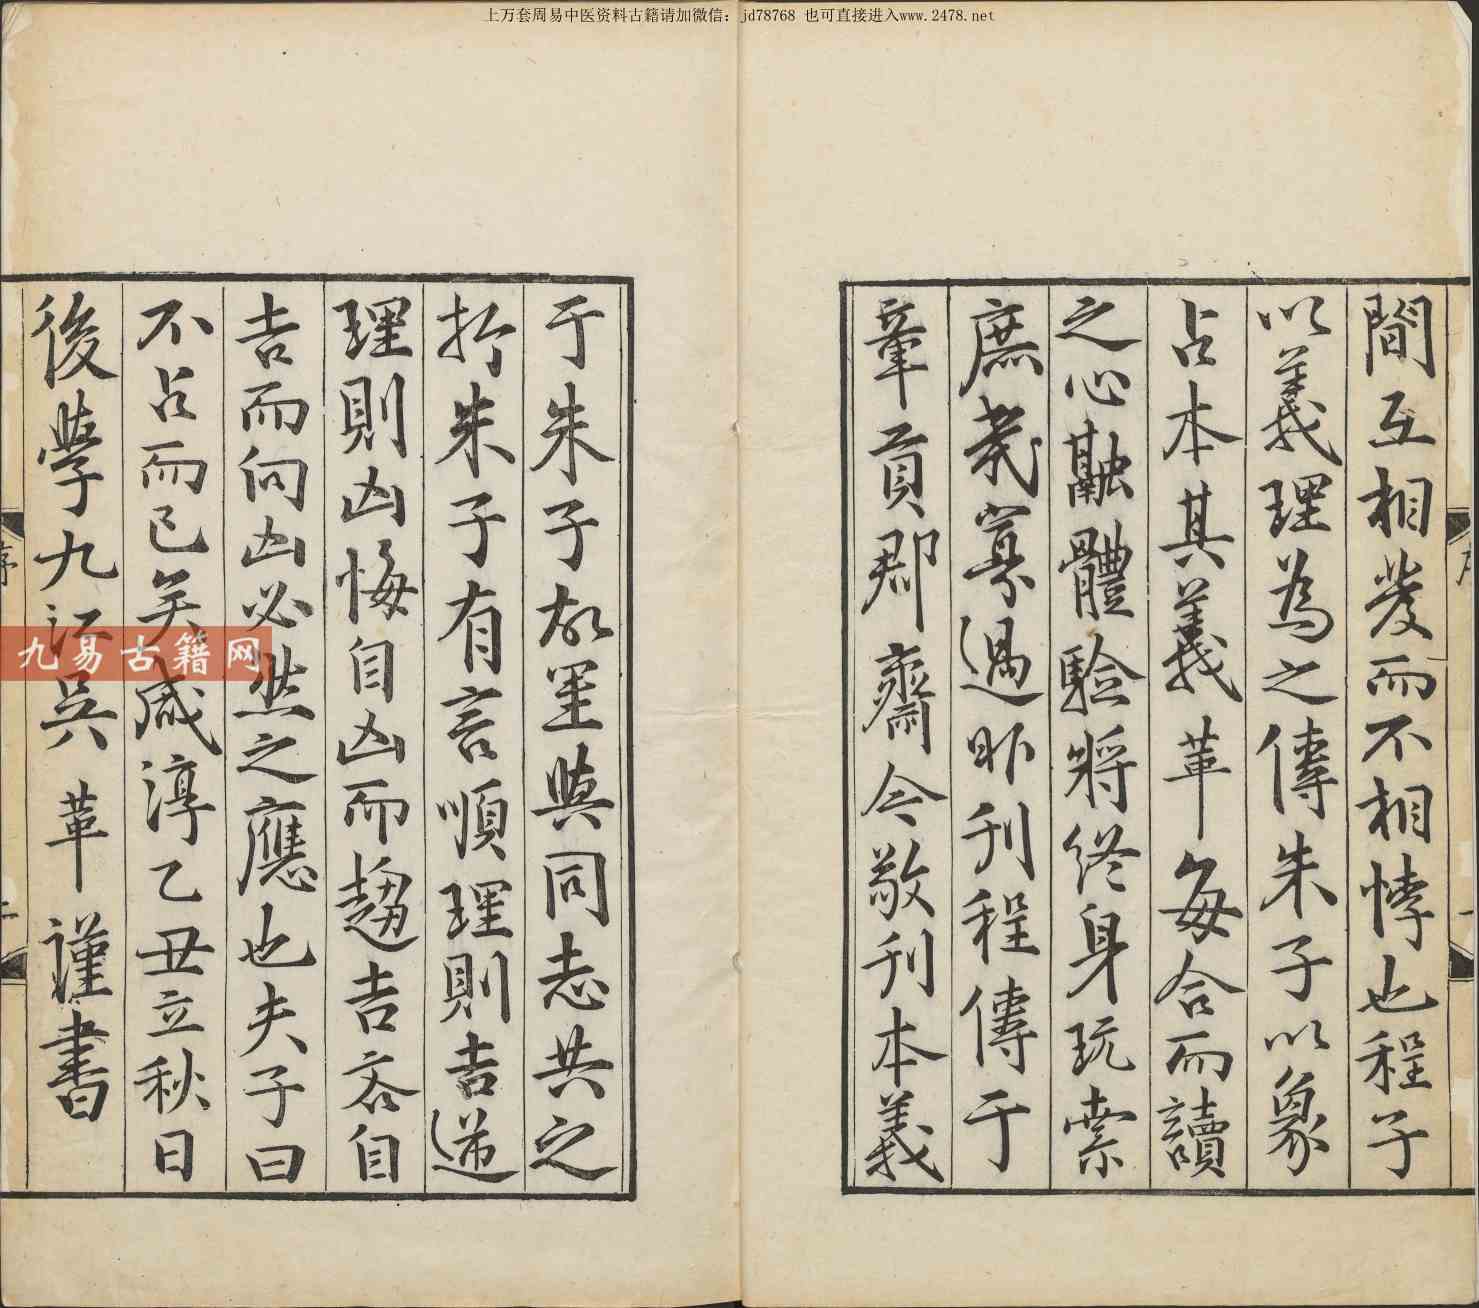 上万套周易中医资料古籍请加微信：jd78768 也可直接进入www.2478.net
間互相發而不相悖也程子
以義理為之傳朱子以象
占本其義革每合而讀
之心融體驗將終身玩索
庶幾寡過昨刊程傳于
章貢郡齋今敬刊本義
于朱子故里與同志共之
抑朱子有言順理則吉逆
理則凶悔自凶而趨吉吝自
吉而向凶必然之應也夫子曰
不占而已矣咸淳乙丑立秋日
後學九江吳革謹書
序
九易古籍网